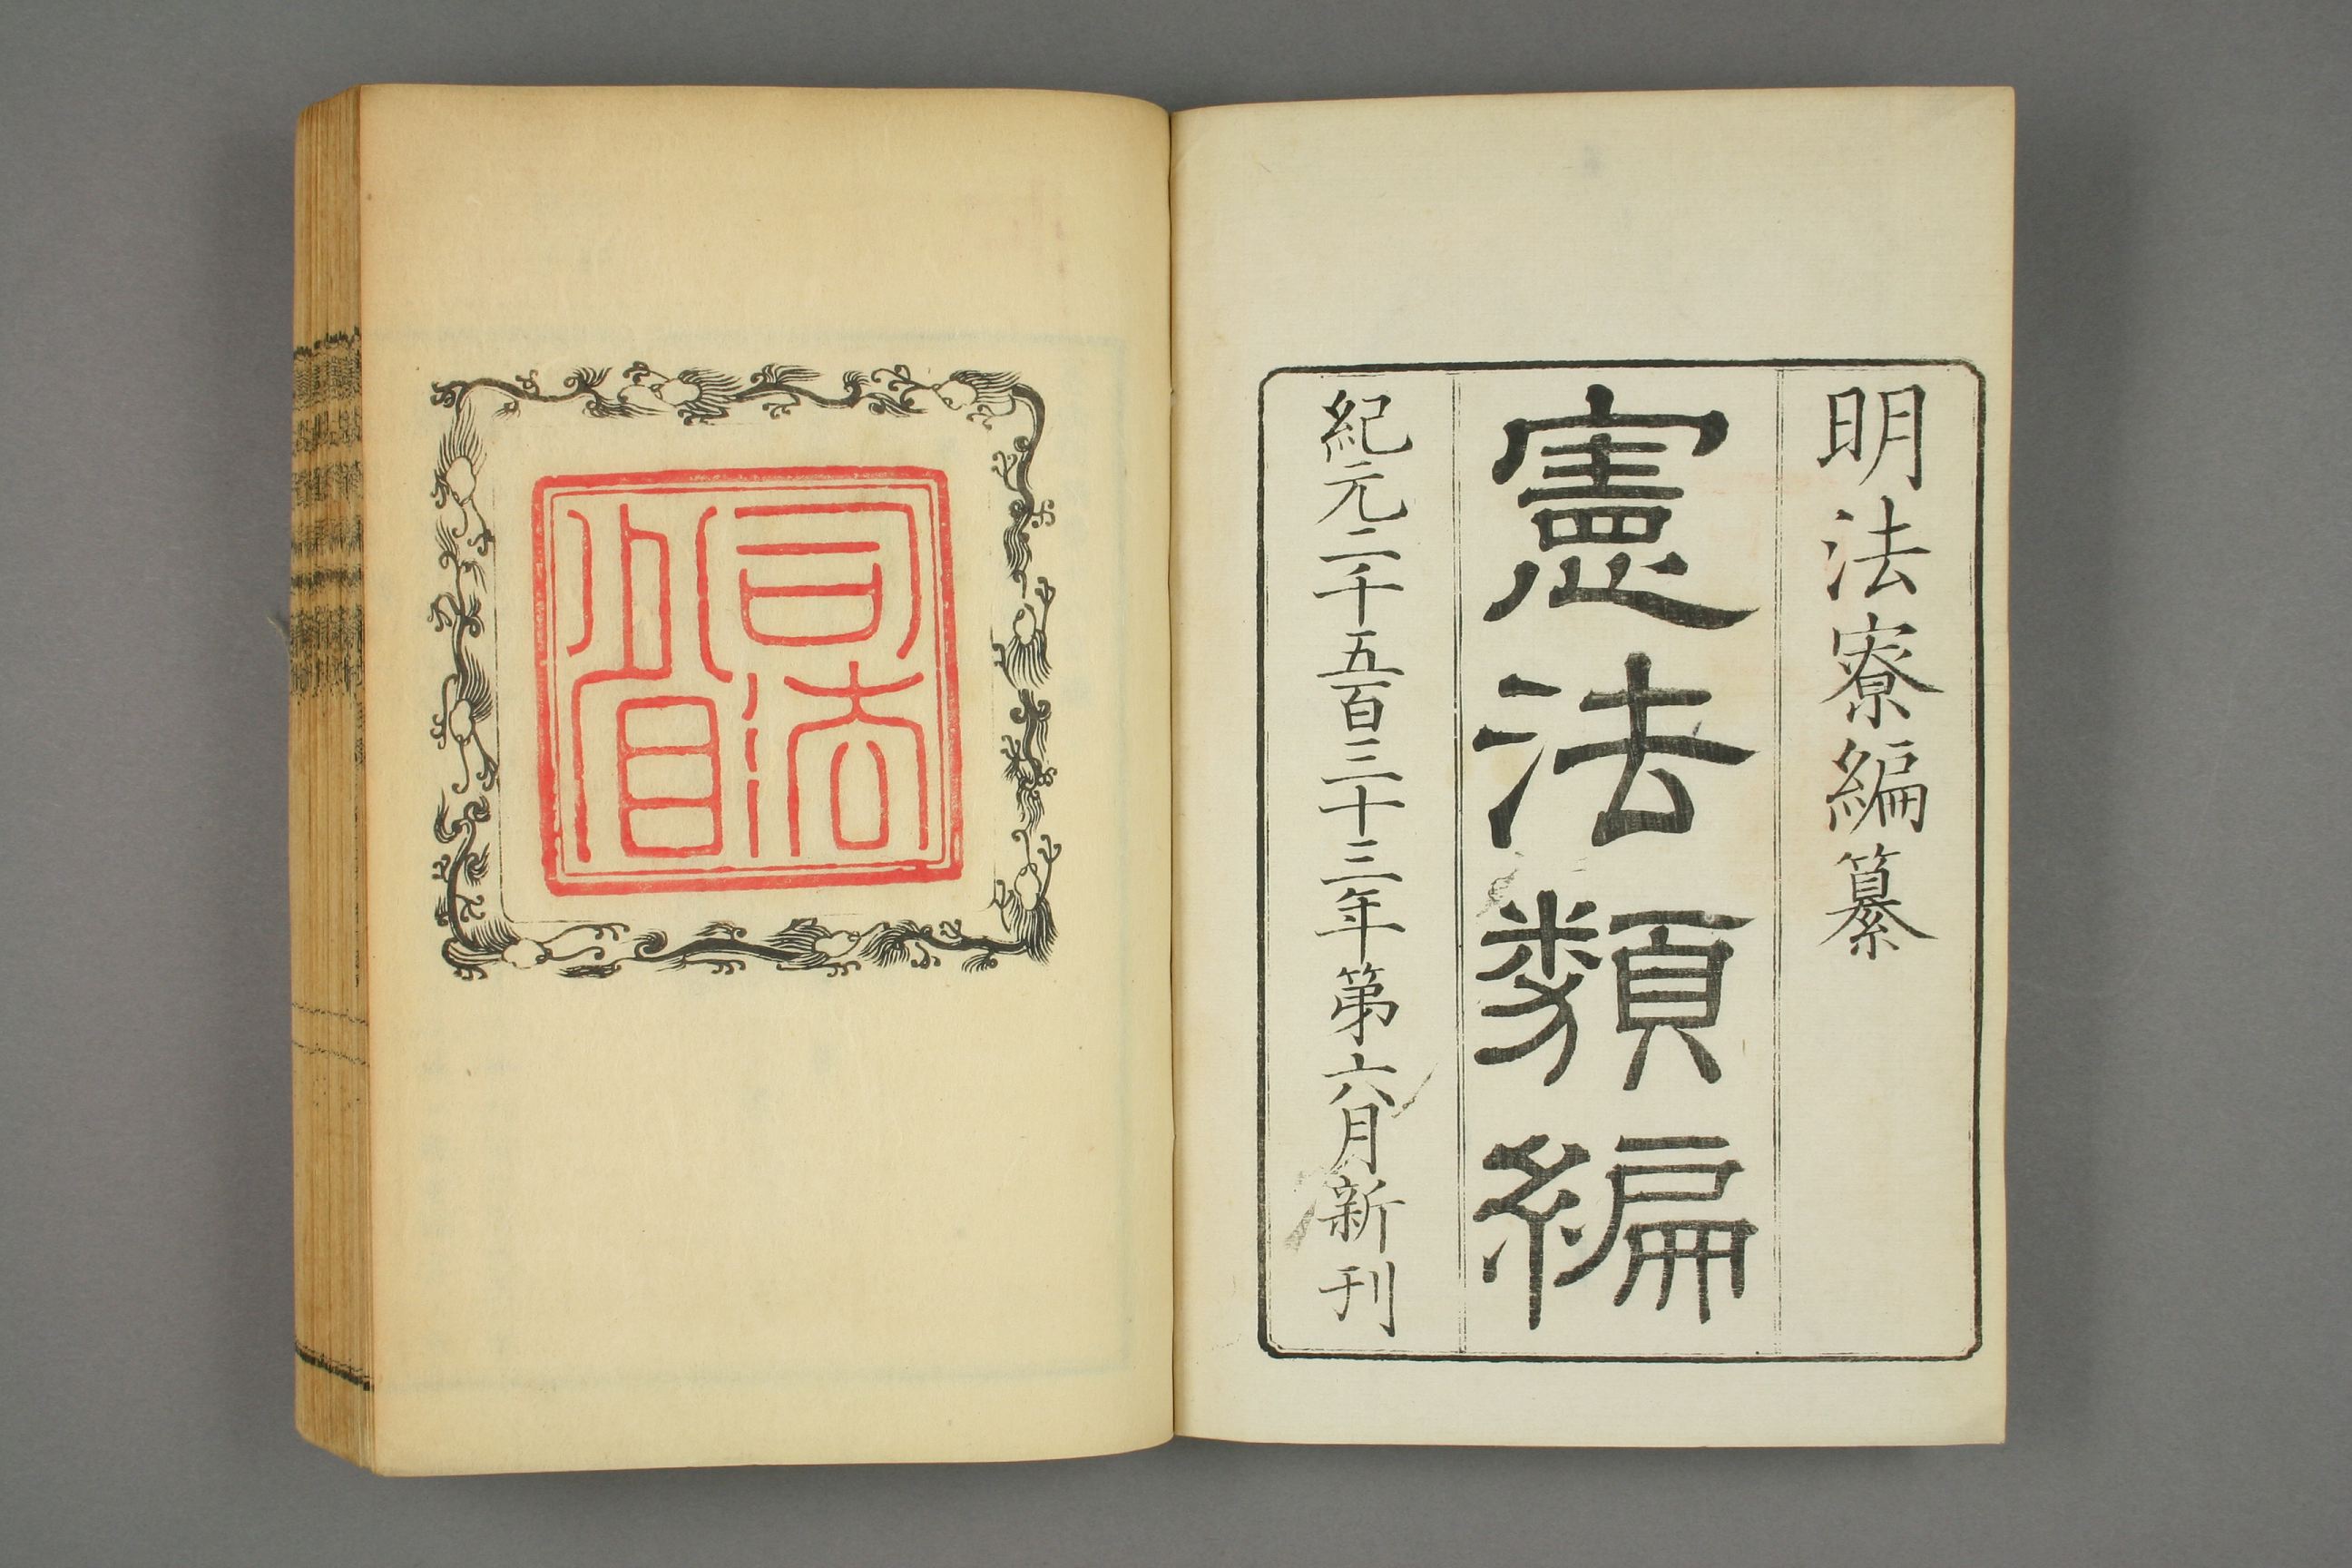 明法寮編纂
憲法類編
紀元二千五百三十三年第六月新刊
司法
省